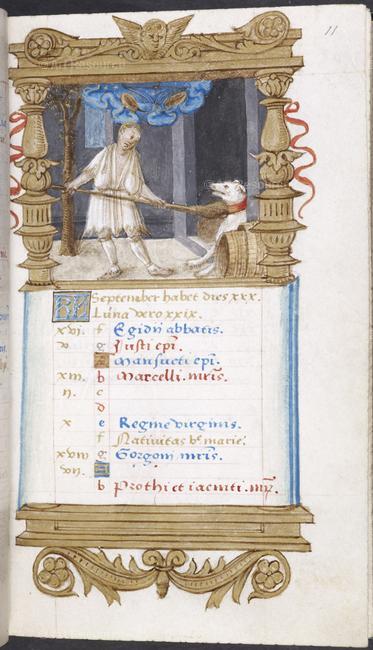 11
KL September habet dies xxx.
Luna vero xxix.
xvi f Egidii abbatis.
v g Justi epi.
A Mansueti epi.
xiii b Marcelli. mris.
ii c
d
x e Regine virginis.
f Nativitas be marie.
xviii g Gorgoni mris.
vii A
b Prothi et iacincti. mr.